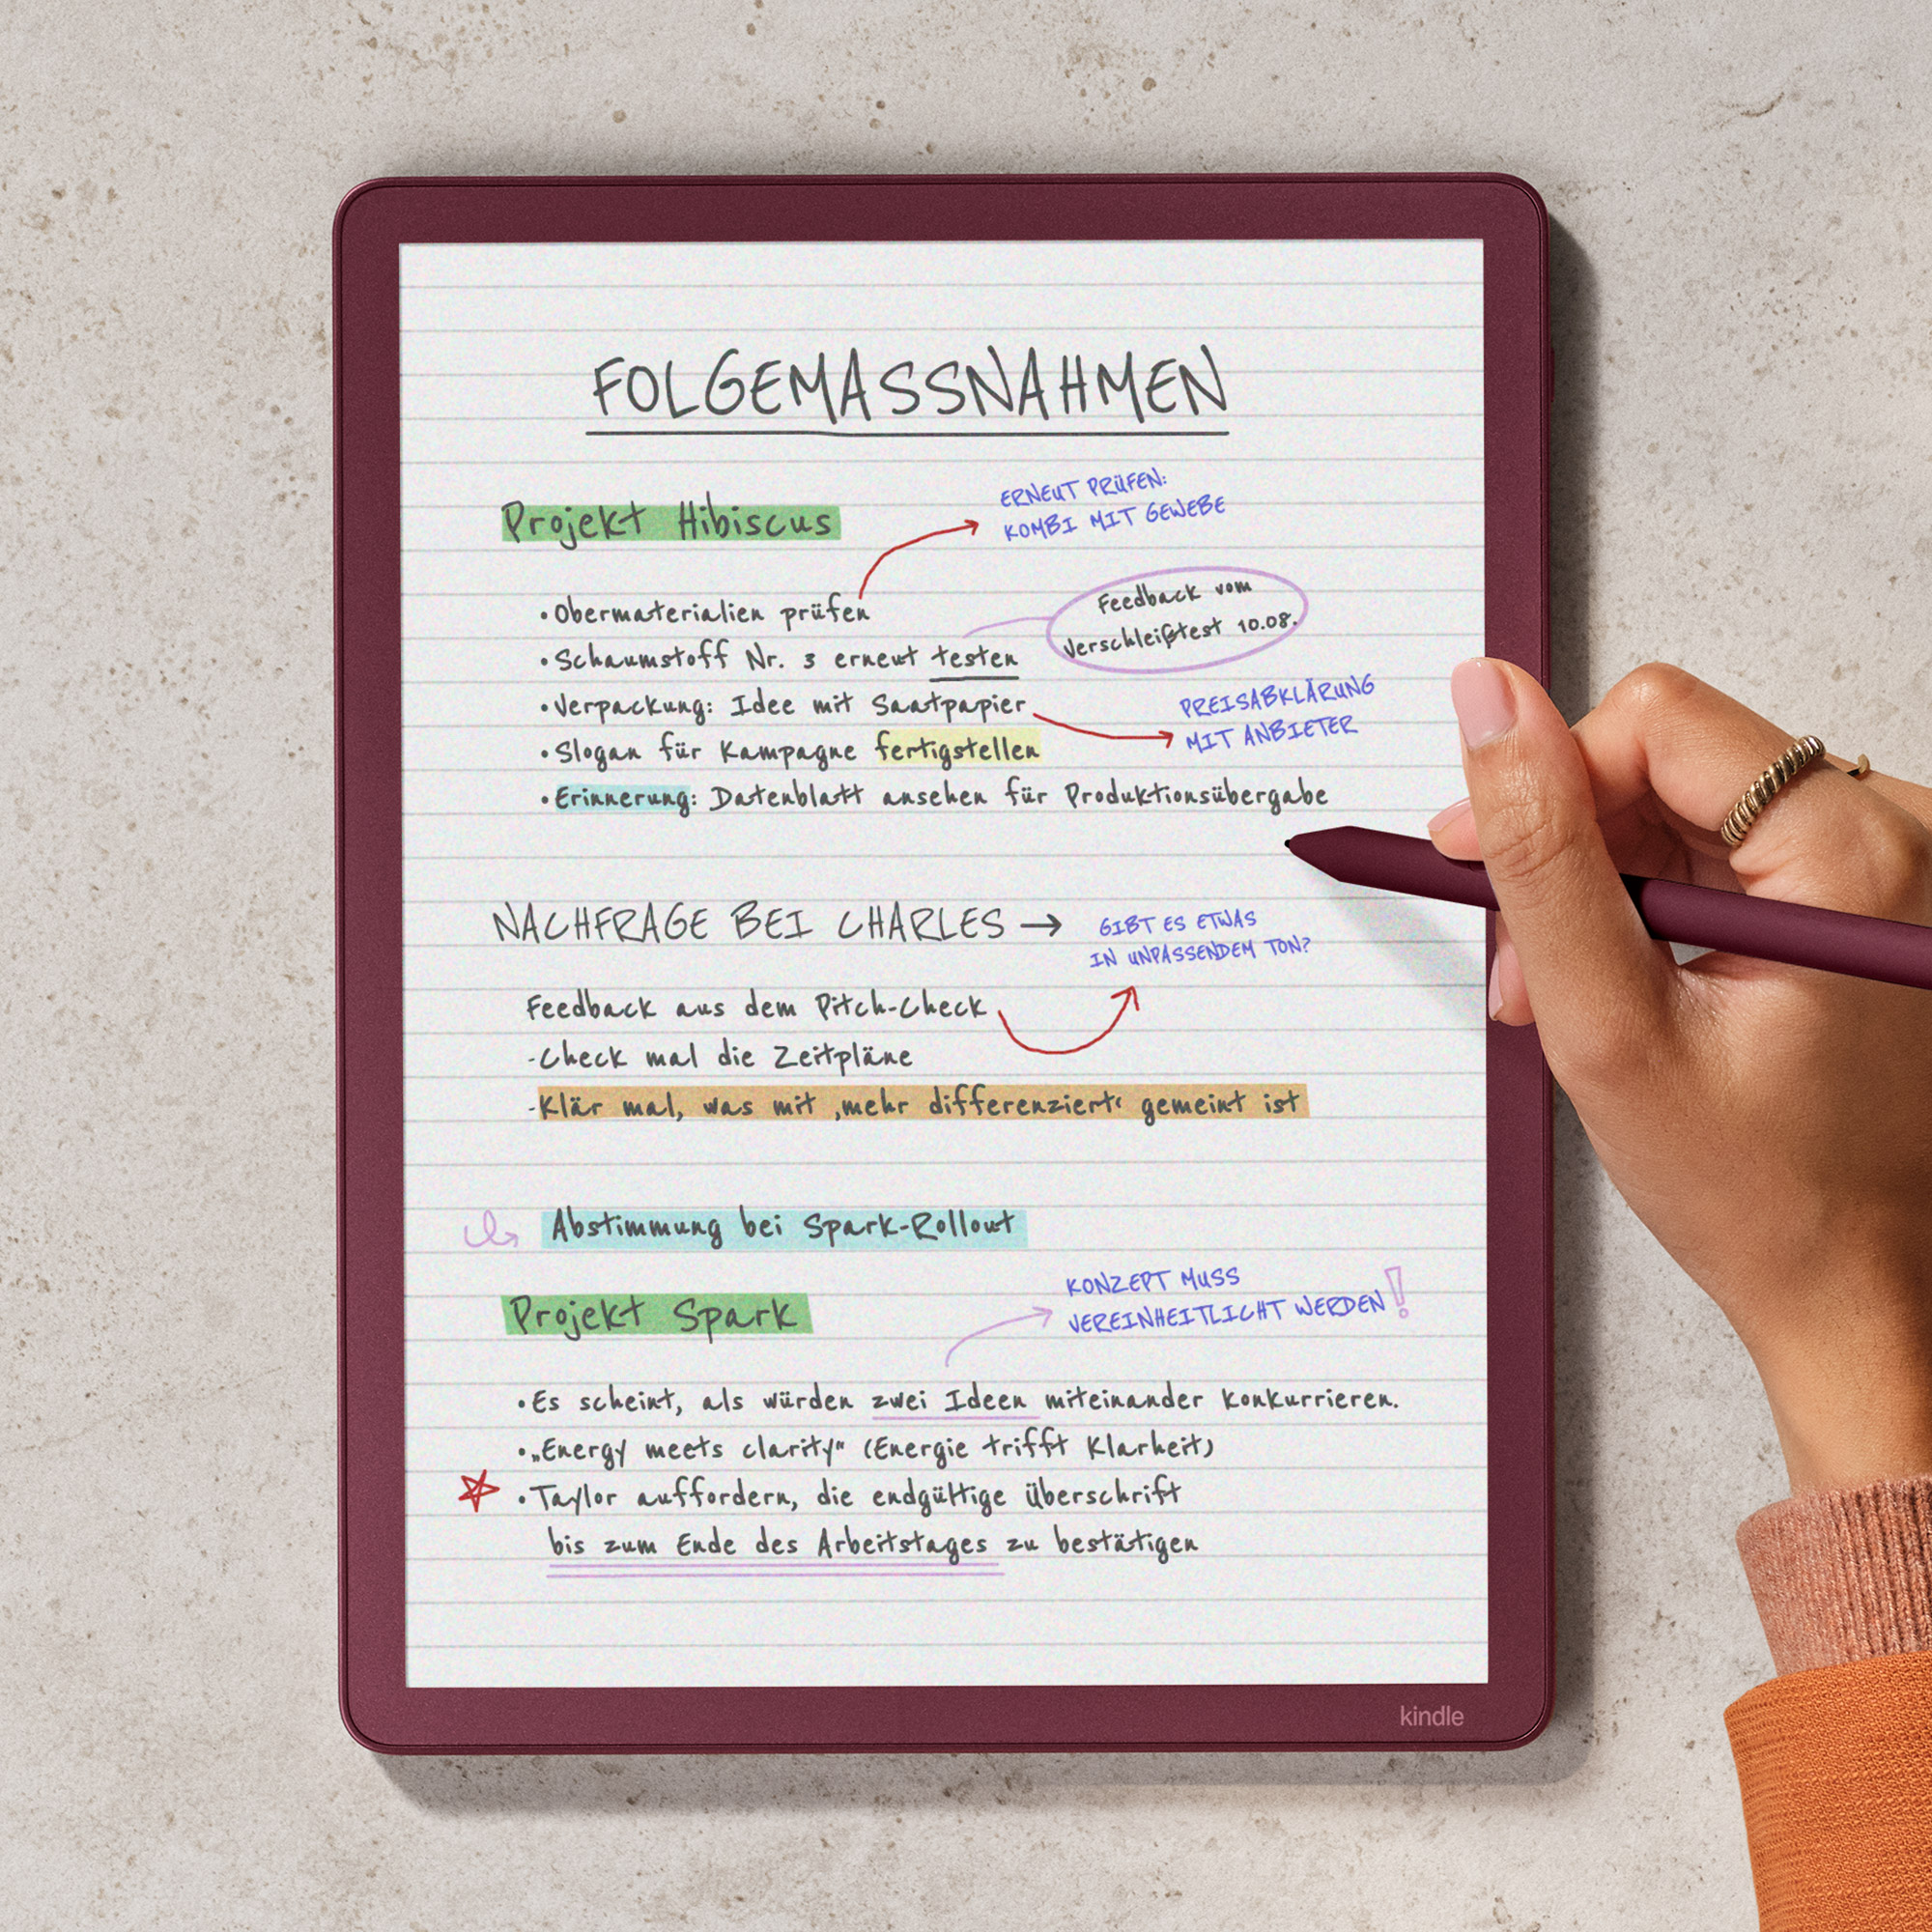 FOLGEMASSNAHMEN
Projekt Hibiscus
ERNEUT PRÜFEN:
KOMBI MIT GEWEBE
•Obermaterialien prüfen
Feedback vom
Verschleißtest 10.08.
•Schaumstoff Nr. 3 erneut testen
•Verpackung: Idee mit Saatpapier
PREISABKLÄRUNG
MIT ANBIETER
•Slogan für Kampagne fertigstellen
•Erinnerung: Datenblatt ansehen für Produktionsübergabe
NACHFRAGE BEI CHARLES →
GIBT ES ETWAS
IN UNPASSENDEM TON?
Feedback aus dem Pitch-Check
-Check mal die Zeitpläne
-Klär mal, was mit ‚mehr differenziert‘ gemeint ist
Abstimmung bei Spark-Rollout
Projekt Spark
KONZEPT MUSS
VEREINHEITLICHT WERDEN!
•Es scheint, als würden zwei Ideen miteinander konkurrieren.
•„Energy meets clarity“ (Energie trifft Klarheit)
•Taylor auffordern, die endgültige Überschrift
bis zum Ende des Arbeitstages zu bestätigen
kindle